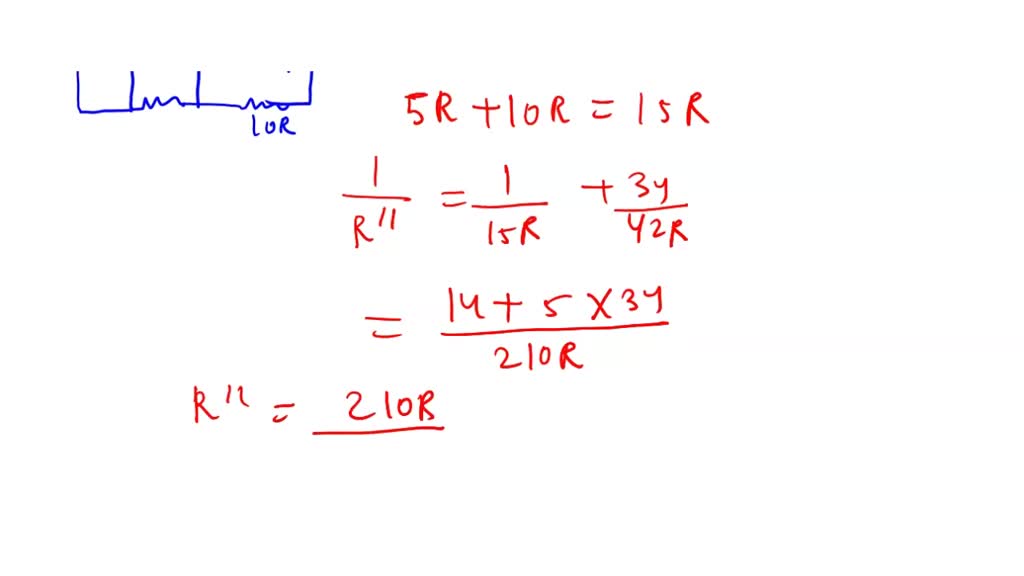 10R
5R + 10R = 15R
1/R" = 1/15R + 34/42R
= 14 + 5 × 34/210R
R" = 210R